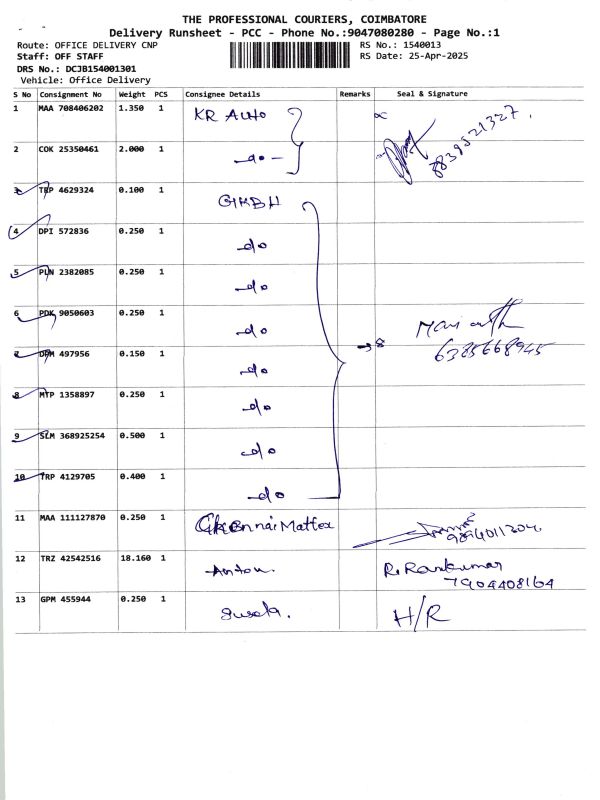 THE PROFESSIONAL COURIERS, COIMBATORE
Delivery Runsheet - PCC - Phone No.:9047080280 - Page No.:1
Route: OFFICE DELIVERY CNP
RS No.: 1540013
Staff: OFF STAFF
RS Date: 25-Apr-2025
DRS No.: DCJB154001301
Vehicle: Office Delivery
S No Consignment No Weight PCS Consignee Details Remarks Seal & Signature
1 MAA 708406202 1.350 1 KR Auto
8839521327.
2 COK 25350461 2.000 1 -do-
3 TRP 4629324 0.100 1 GKBH
4 DPI 572836 0.250 1 -do
5 PLN 2382085 0.250 1 -do
6 PDK 9050603 0.250 1 -do
→ 8
6385668945
7 497956 0.150 1 -do
8 MTP 1358897 0.250 1 -do
9 SLM 368925254 0.500 1 -do
10 TRP 4129705 0.400 1 -do
11 MAA 111127870 0.250 1
12 TRZ 42542516 18.160 1 Anton. R. Ramkumar
7904408164
13 GPM 455944 0.250 1 H/R